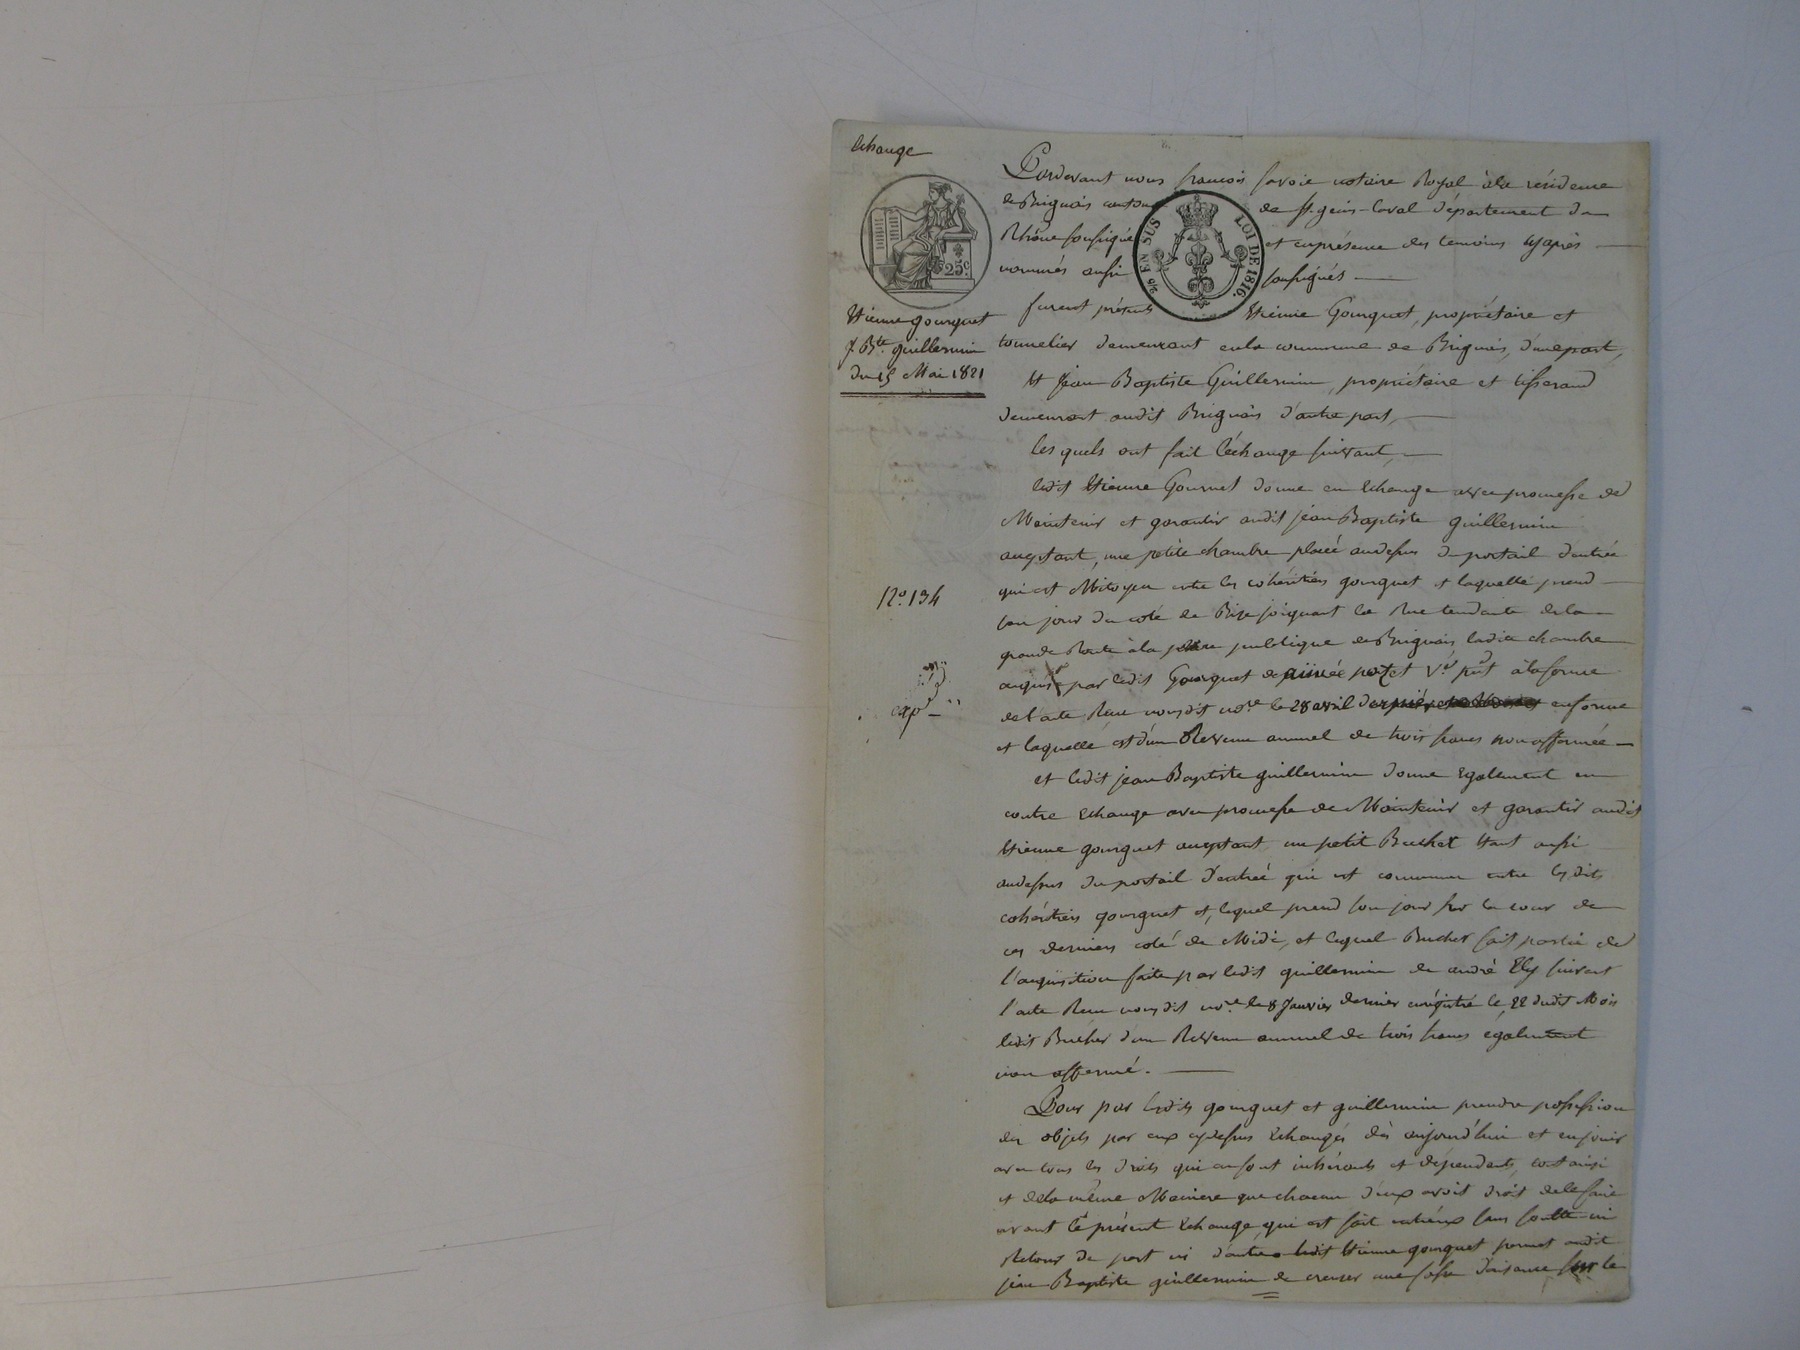 Echange
25c.
Etienne gourguet
J. Bte. guillermin
du 15 Mai 1821
No. 134
expd
EN SUS
LOI DE 1816.
Pardevant nous françois favoie notaire Royal à la résidence
de Brignais canton de St. genis-laval département du
Rhône soussigné et en présence des temoins cy après
nommés aussi soussignés
furent présents Etienne Gourguet, propriétaire et
tonnelier demeurant en la commune de Brignais, d'une part,
Et Jean Baptiste Guillermin, propriétaire et tisserand
demeurant audit Brignais d'autre part,
les quels ont fait l'échange suivant,
ledit Etienne Gourguet donne en Echange avec promesse de
Maintenir et garantir audit jean Baptiste guillermin
acceptant, une petite chambre placée audessus du portail d'entrée
qui est Mitoyen entre les cohéritiers gourguet et laquelle prend
son jour du coté de Bize joignant la Rue tendante de la
grande Route à la place publique de Brignais ladite chambre
acquise par ledit Gourguet de à la forme
de l'acte Recu nousdit nore. le 28 avril dernier en forme
et laquelle est d'un Revenu annuel de trois francs non affermée
et ledit jean Baptiste guillermin donne Egalement en
contre Echange avec promesse de Maintenir et garantir audit
Etienne gourguet acceptant un petit Bucher Etant aussi
audessus du portail d'entrée qui est commun entre lesdits
cohéritiers gourguet et, lequel prend son jour sur la cour de
ces derniers coté de Midi, et lequel Bucher fait partie de
l'acquisition faite par ledit guillermin de andré Ely suivant
l'acte Recu nousdit nore. le 8 Janvier dernier enrégistré le 22 dudit Mois
ledit Bucher d'un Revenu annuel de trois francs également
non affermé.
Pour par lesdits gourguet et guillermin prendre possession
des objets par eux cydessus Echangés dès aujourd'hui et en jouir
avec tous les droits qui en sont inhérents et dépendants, tout ainsi
et de la même Maniere que chacun d'eux avoit droit de le faire
avant le présent Echange, qui est fait entr'eux sans soulte ni
Retour de part ni d'autre ledit Etienne gourguet permet audit
jean Baptiste guillermin de creuser une fosse d'aisance sur le